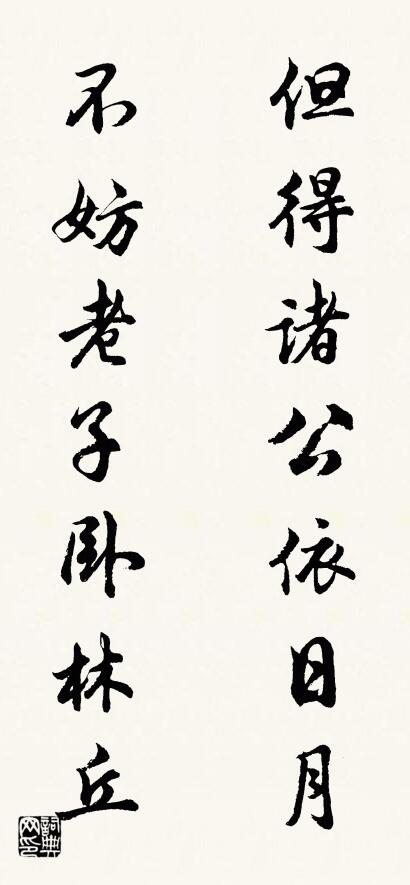 但得諸公依日月
不妨老子臥林丘
詞典网印